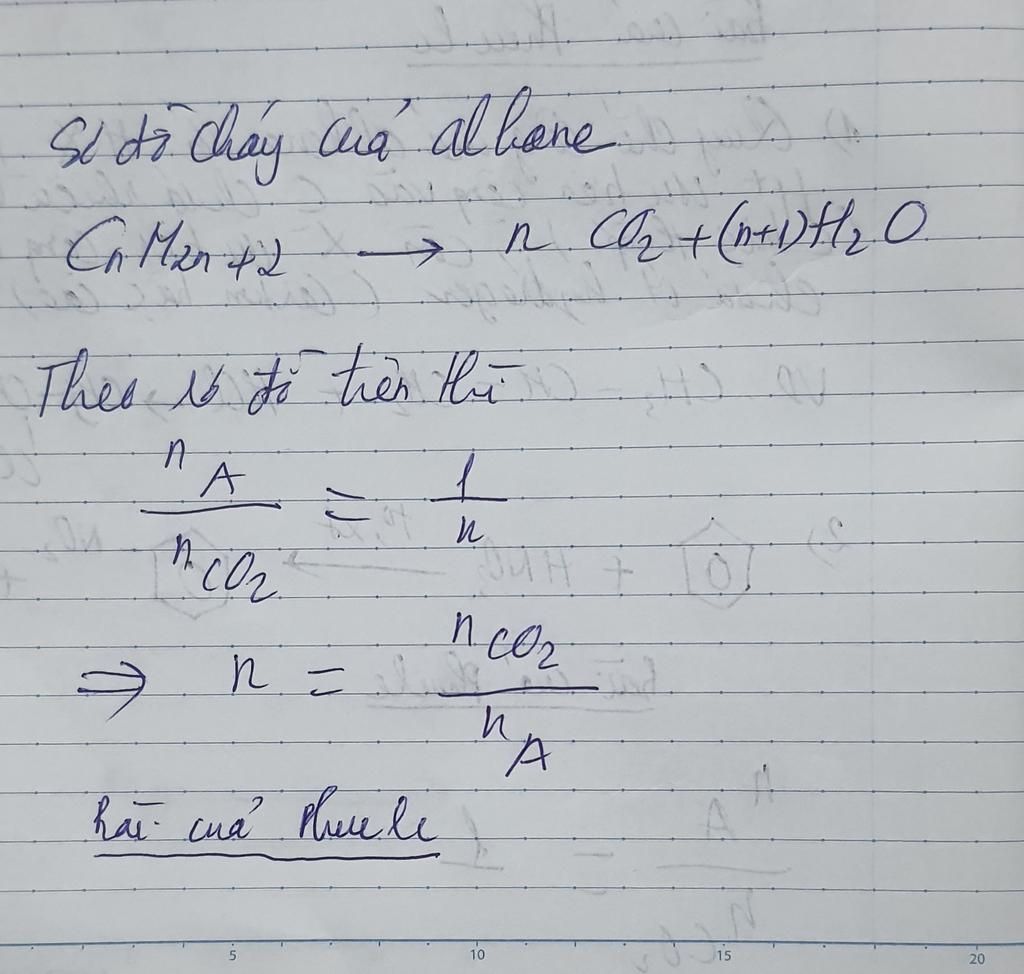 Sơ đồ cháy của alkane
CnH2n+2 → n CO2 + (n+1)H2O
Theo sơ đồ trên thì
nA / nCO2 = 1 / n
⇒ n = nCO2 / nA
bài của
5 10 15 20